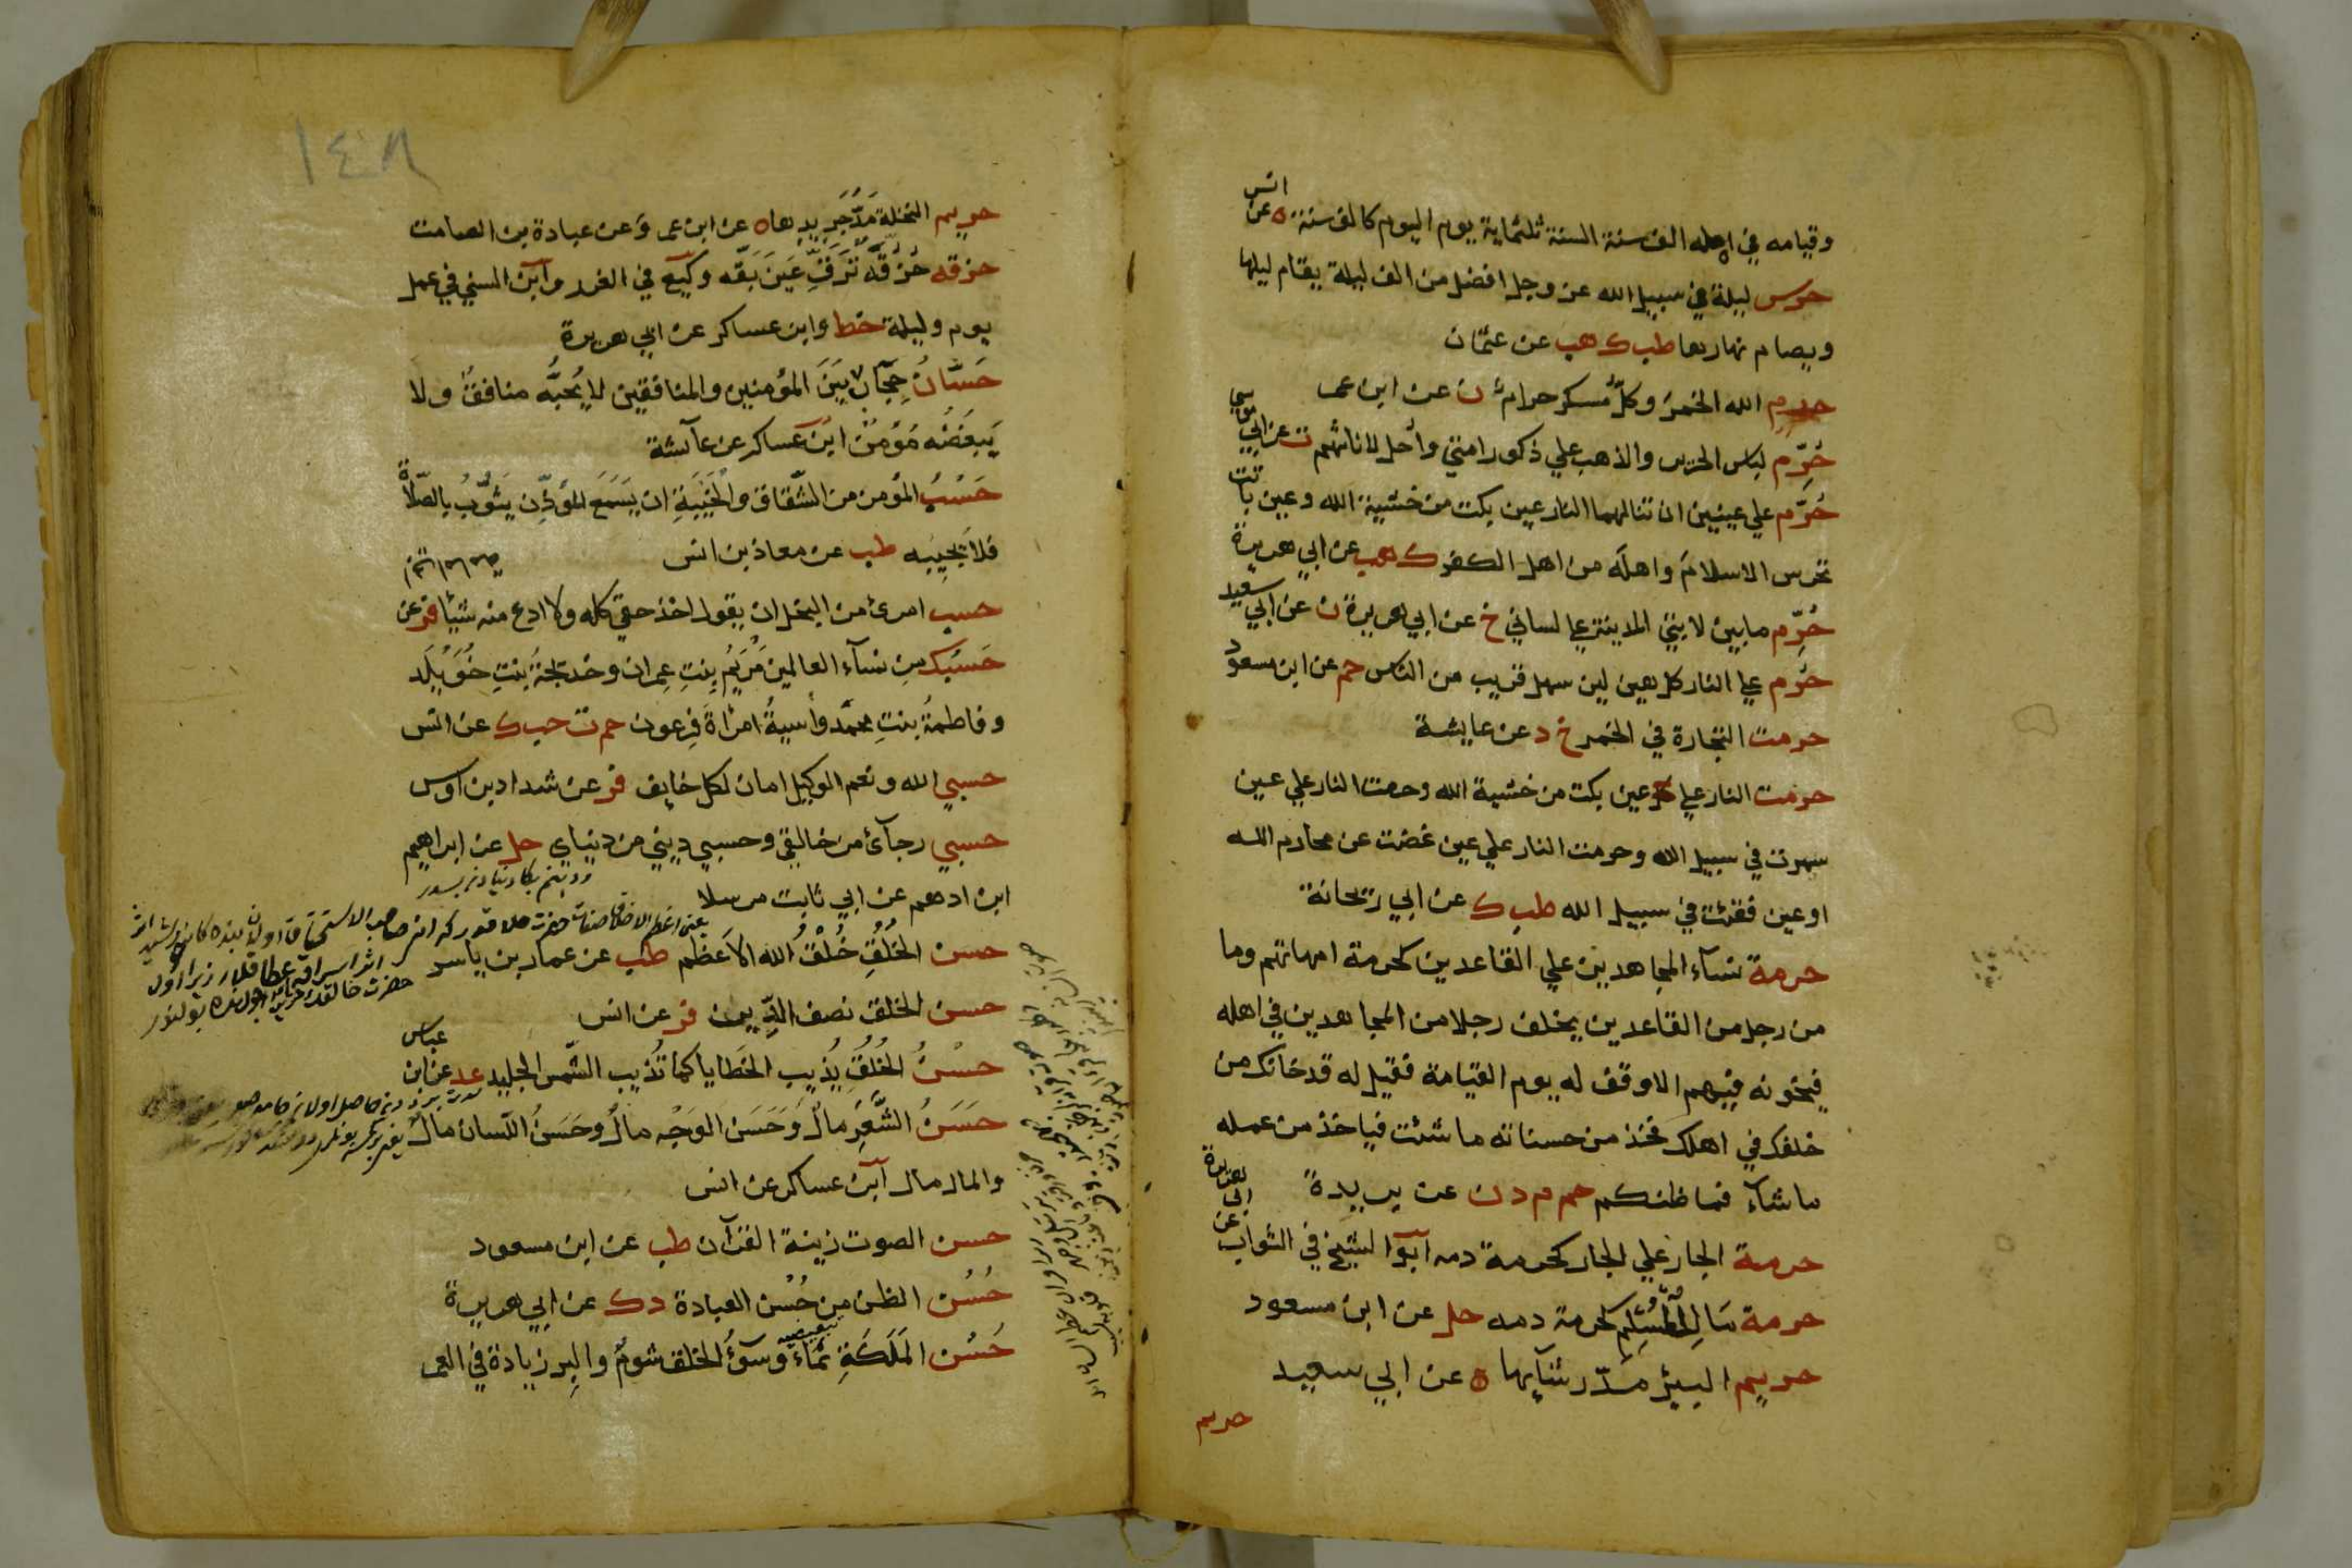 وقيامه في اهله الف سنة السنة ثلثماية يوم اليوم كالف سنة ه عن انس
حرس ليلة في سبيل الله عز وجل افضل من الف ليلة يقام ليلها
ويصام نهارها طب ك هب عن عثمان
حرم الله الخمر وكل مُسكر حرام ن عن ابن عمر
حُرِّم لباس الحرير والذهب علي ذكور امتي وأحل لاناثهم ت عن ابي موسي
حُرِّم علي عينين ان تنالهما النار عين بكت من خشية الله وعين باتت
تحرس الاسلامَ واهلَه من اهل الكفر ك هب عن ابي هريرة
حُرِّم مابين لابتي المدينة علي لساني خ عن ابي هريرة ن عن ابي سعيد
حُرِّم علي النار كل هين لين سهل قريب من الناس حم عن ابن مسعود
حرمت التجارة في الخمر خ د عن عايشة
حرمت النار علي عين بكت من خشية الله وحرمت النار علي عين
سهرت في سبيل الله وحرمت النار علي عين غضت عن محارم الله
او عين فقئت في سبيل الله طب ك عن ابي ريحانة
حرمة نسآء المجاهدين علي القاعدين كحرمة امهاتهم وما
من رجل من القاعدين يخلف رجلا من المجاهدين في اهله
فيخونه فيهم الا وقف له يوم القيامة فقيل له قد خانك من
خلفك في اهلك فخذ من حسناته ما شئت فياخذ من عمله
ما شآء فما ظنكم حم م د ن عن بريدة
حرمة الجار علي الجار كحرمة دمه ابو الشيخ في الثواب عن ابي هريرة
حرمة مَالِ المُسْلِم كحرمة دمه حل عن ابن مسعود
حريم البئر مدّ رشآئها ه عن ابي سعيد
حريم
١٤٨
حريم النخلة مَدّ جَرِيدِها ه عن ابن عمر وَعن عبادة بن الصامت
حزقه حُزُقَّه تَرَقَّ عَينَ بَقّه وكيع في الغرر وابن السني في عمل
يوم وليلة خط وابن عساكر عن ابي هريرة
حَسَّانُ حِجَابٌ بَيَنَ المؤمنين والمنافقين لا يُحبُّه منافقٌ ولا
يَبغضُه مُؤمِنٌ ابن عساكر عن عآئشة
حَسْبُ المؤمن من الشّقاق والخَيبَةِ ان يَسمَع المؤذِّن يثَوِّبُ بالصّلاة
فلا يُجِيبه طب عن معاذ بن انس
حسب امرئ من البخل ان يقول اخذ حقي كله ولا ادع منه شيئا فر عن
حَسْبُكَ مِن نسآء العالمين مَرْيَمُ بِنتِ عِمران وخديجَةُ بنتِ خُوَيْلَد
وفاطمةُ بنتِ محمّد وأسيةُ امرَأةَ فِرعون حم ت حب ك عن انس
حسبي الله ونعم الوكيل امان لكل خايف فر عن شداد بن اوس
حسبي رجآئ من خالقي وحسبي ديني من دنياي حل عن ابراهيم
ابن ادهم عن ابي ثابت مرسلا
حسن الخُلُقِ خُلُقُ الله الاعظم طب عن عمار بن ياسر
حسن الخلق نصف الدِّين فر عن انس
حسْنُ الخُلُقِ يُذيب الخَطايا كما تُذيب الشّمس الجليد عد عن ابن عباس
حَسَنُ الشَّعَرِ مَالٌ وَحَسَنَ الوَجْه مالٌ وحَسَنُ اللّسان مالٌ
والمال مال ابن عساكر عن انس
حسن الصوت زينة القرآن طب عن ابن مسعود
حُسْن الظن مِن حُسْن العبادة د ك عن ابي هريرة
حُسْن المَلَكَةِ نمَاءٌ وسُوْءُ الخلق شومٌ والبِر زيادة في العمر